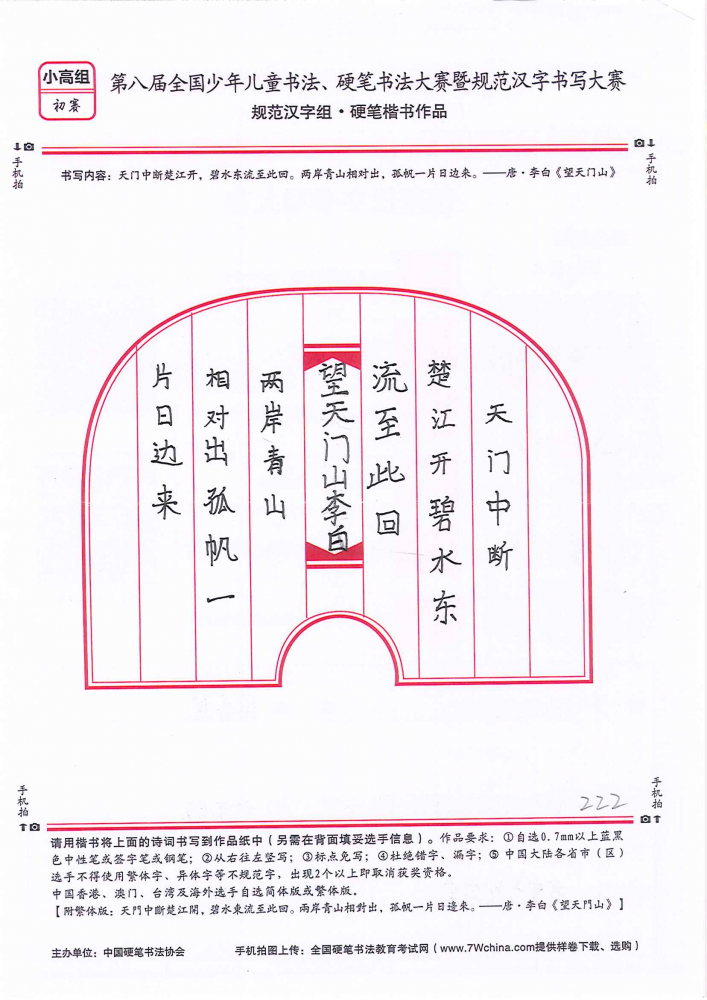 小高组
初赛
第八届全国少年儿童书法、硬笔书法大赛暨规范汉字书写大赛
规范汉字组·硬笔楷书作品
手机拍
手机拍
书写内容：天门中断楚江开，碧水东流至此回。两岸青山相对出，孤帆一片日边来。——唐·李白《望天门山》
天门中断
楚江开碧水东
流至此回
望天门山李白
两岸青山
相对出孤帆一
片日边来
222
手机拍
手机拍
请用楷书将上面的诗词书写到作品纸中（另需在背面填妥选手信息）。作品要求：①自选0.7mm以上蓝黑
色中性笔或签字笔或钢笔；②从右往左竖写；③标点免写；④杜绝错字、漏字；⑤中国大陆各省市（区）
选手不得使用繁体字、异体字等不规范字，出现2个以上即取消获奖资格。
中国香港、澳门、台湾及海外选手自选简体版或繁体版。
【附繁体版：天門中斷楚江開，碧水東流至此回。兩岸青山相對出，孤帆一片日邊來。——唐·李白《望天門山》】
主办单位：中国硬笔书法协会
手机拍图上传：全国硬笔书法教育考试网（www.7Wchina.com提供样卷下载、选购）